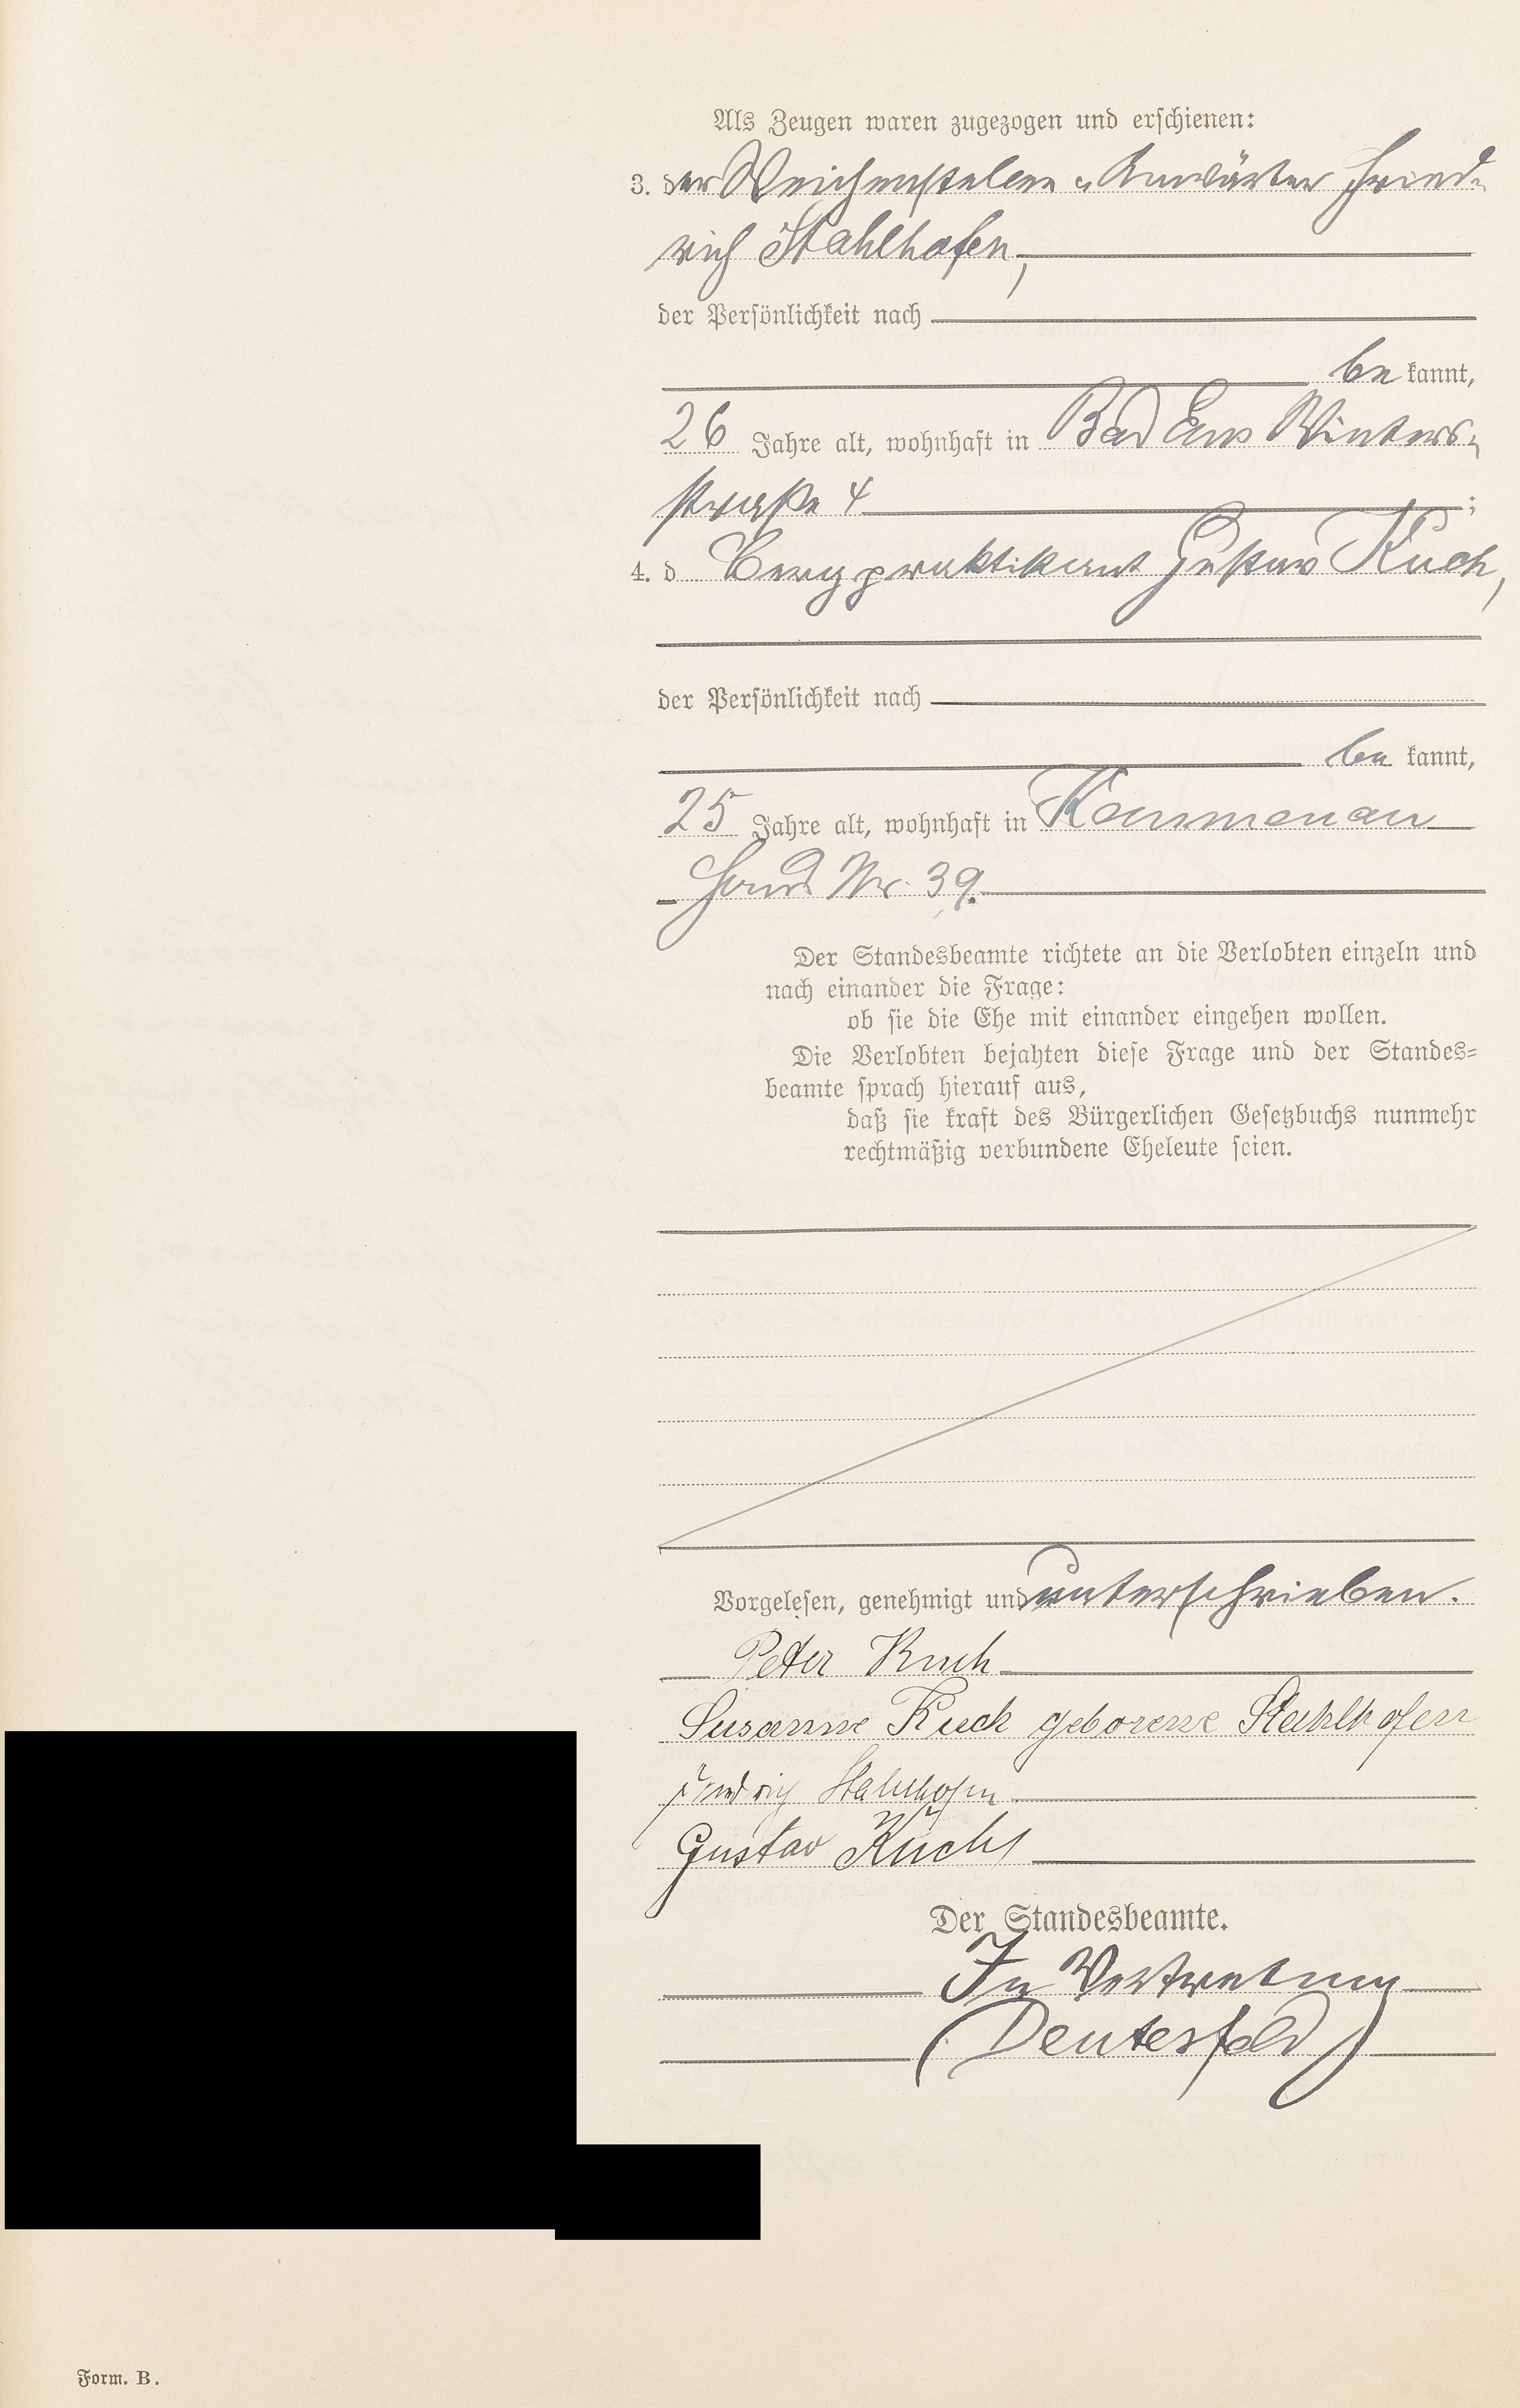 Als Zeugen waren zugezogen und erschienen:
3. der Weichensteller-Anwärter Fried-
rich Stahlhofen,
der Persönlichkeit nach
be kannt,
26 Jahre alt, wohnhaft in Bad Ems Winters-
straße 4 ;
4. d Bergpraktikant Gustav Kuch,
der Persönlichkeit nach
be kannt,
25 Jahre alt, wohnhaft in Kemmenau
Haus Nr. 39.
Der Standesbeamte richtete an die Verlobten einzeln und
nach einander die Frage:
ob sie die Ehe mit einander eingehen wollen.
Die Verlobten bejahten diese Frage und der Standes-
beamte sprach hierauf aus,
daß sie kraft des Bürgerlichen Gesetzbuchs nunmehr
rechtmäßig verbundene Eheleute seien.
Vorgelesen, genehmigt und unterschrieben.
Peter Kuch
Susanne Kuch geborene Stahlhofen
Friedrich Stahlhofen
Gustav Kuch
Der Standesbeamte.
In Vertretung
(Deutesfeld)
Form. B.